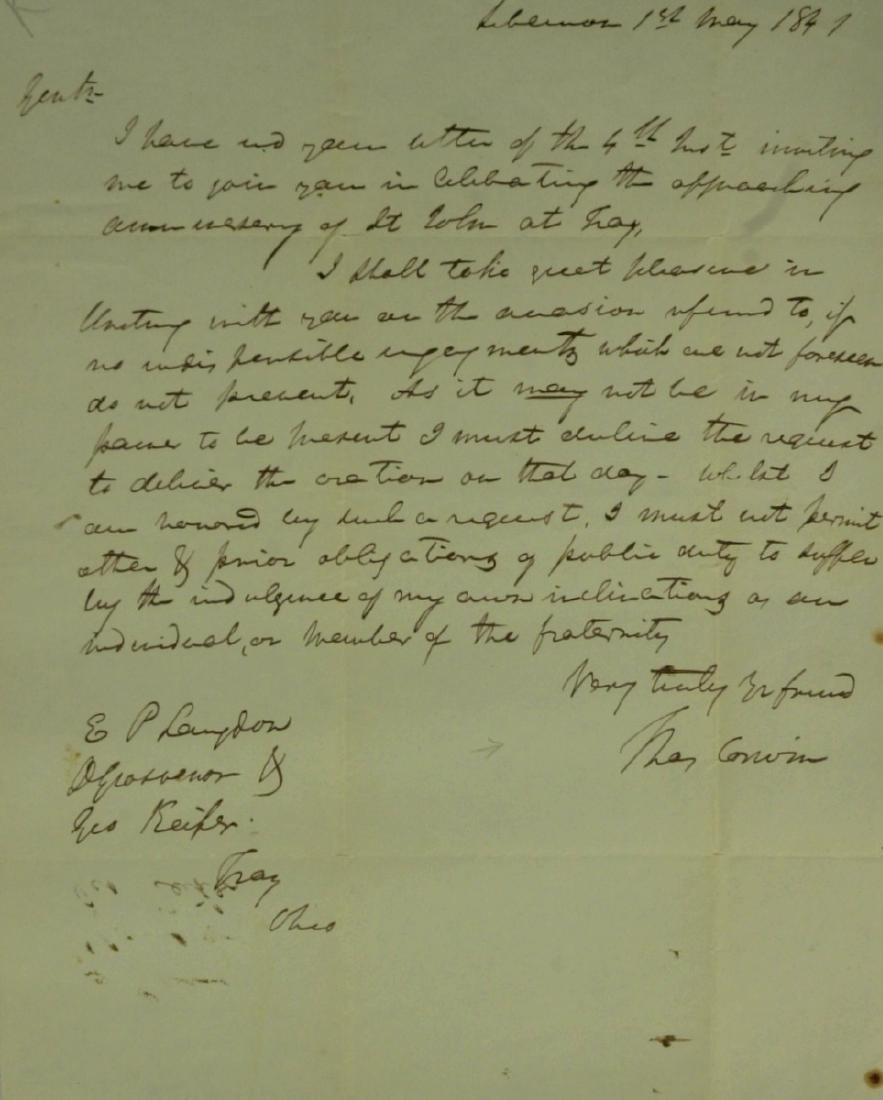 Lebanon 1st May 1841
Gentn
I have recd your letter of the 4th Inst. inviting
me to join you in Celebrating the approaching
anniversary of St John at Troy,
I shall take great pleasure in
Uniting with you on the occasion referred to, if
no indispensible engagements which are not foreseen
do not prevent. As it may not be in my
power to be present I must decline the request
to deliver the oration on that day - Whilst I
am honored by such a request, I must not permit
other & prior obligations of public duty to suffer
by the indulgence of my own inclinations as an
individual, or Member of the fraternity
Very truly Yr friend
Thos Corwin
E P Langdon
D Grosvenor &
Geo Keifer.
Troy
Ohio